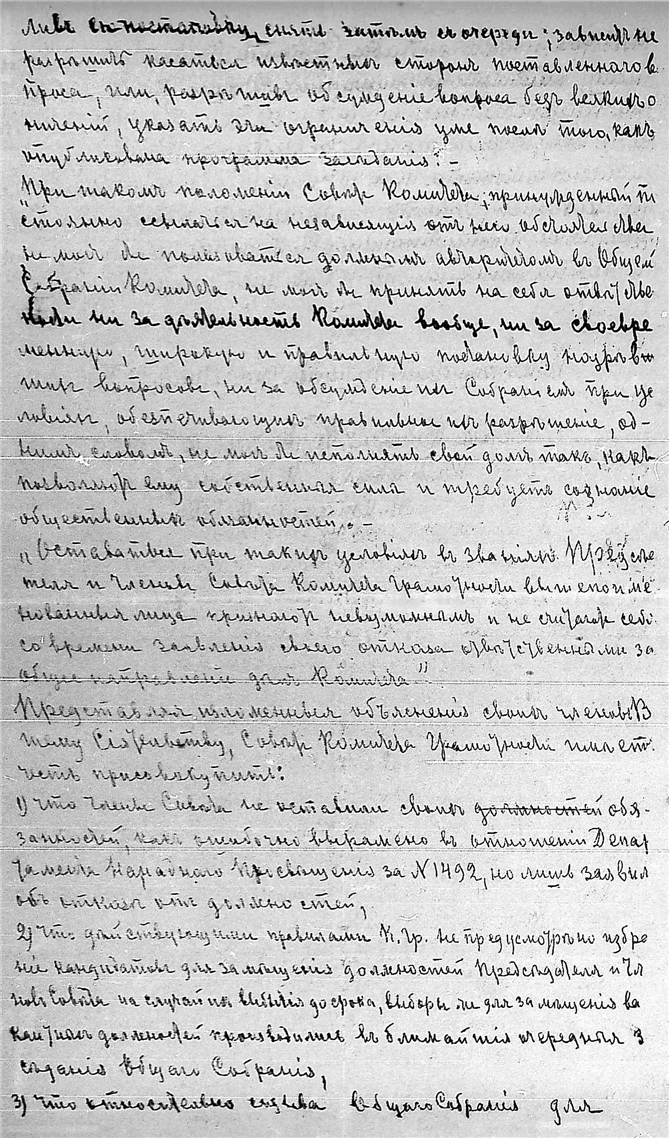 ливъ ея постановку, снять затѣмъ съ очереди; зависитъ не
разрѣшить касаться извѣстныхъ сторонъ поставленнаго в
проса, или, разрѣшивъ обсужденіе вопроса безъ всякихъ о
ниченій, указать эти ограниченія уже послѣ того, какъ
опубликована программа засѣданія. –
„При такомъ положеніи Совѣтъ Комитета, принужденный
стоянно ссылаться на независящія отъ него обстоятельс
не могъ бы пользоваться должнымъ авторитетомъ въ Общем
Собраніи Комитета, не могъ бы принять на себя отвѣтстве
ности ни за дѣятельность Комитета вообще, ни за своевре
менную, широкую и правильную постановку назрѣв
шихъ вопросовъ, ни за обсужденіе ихъ Собраніемъ при ус
ловіяхъ, обезпечивающихъ правильное ихъ разрѣшеніе, од-
нимъ словомъ, не могъ бы исполнять свой долгъ такъ, какъ
позволяютъ ему собственныя силы и требуетъ сознаніе
общественныхъ обязанностей. –
„Оставаться при такихъ условіяхъ въ званіяхъ Предсѣда
теля и членовъ Совѣта Комитета Грамотности вышепоиме
нованныя лица признаютъ невозможнымъ и не считаютъ себя
со времени заявленія своего отказа отвѣтственными за
общее направленіе дѣлъ Комитета”
Представляя изложенныя объясненія своихъ членовъ В
шему Сіятельству, Совѣтъ Комитета Грамотности имѣетъ
честь присовокупить:
1) что члены Совѣта не оставили своихъ должностей обя-
занностей, какъ ошибочно выражено въ отношеніи Депар
тамента Народнаго Просвѣщенія за N 1492, но лишь заявил
объ отказѣ отъ должностей,
2) что дѣйствующими правилами К. Гр. не предусмотрѣно избра
ніе кандидатовъ для замѣщенія должностей Предсѣдателя и Чл
новъ Совѣта на случай ихъ выбытія до срока, выборы же для замѣщенія ва
кантныхъ должностей производились въ ближайшія очередныя З
сѣданія Общаго Собранія,
3) что относительно созыва Общаго Собранія для